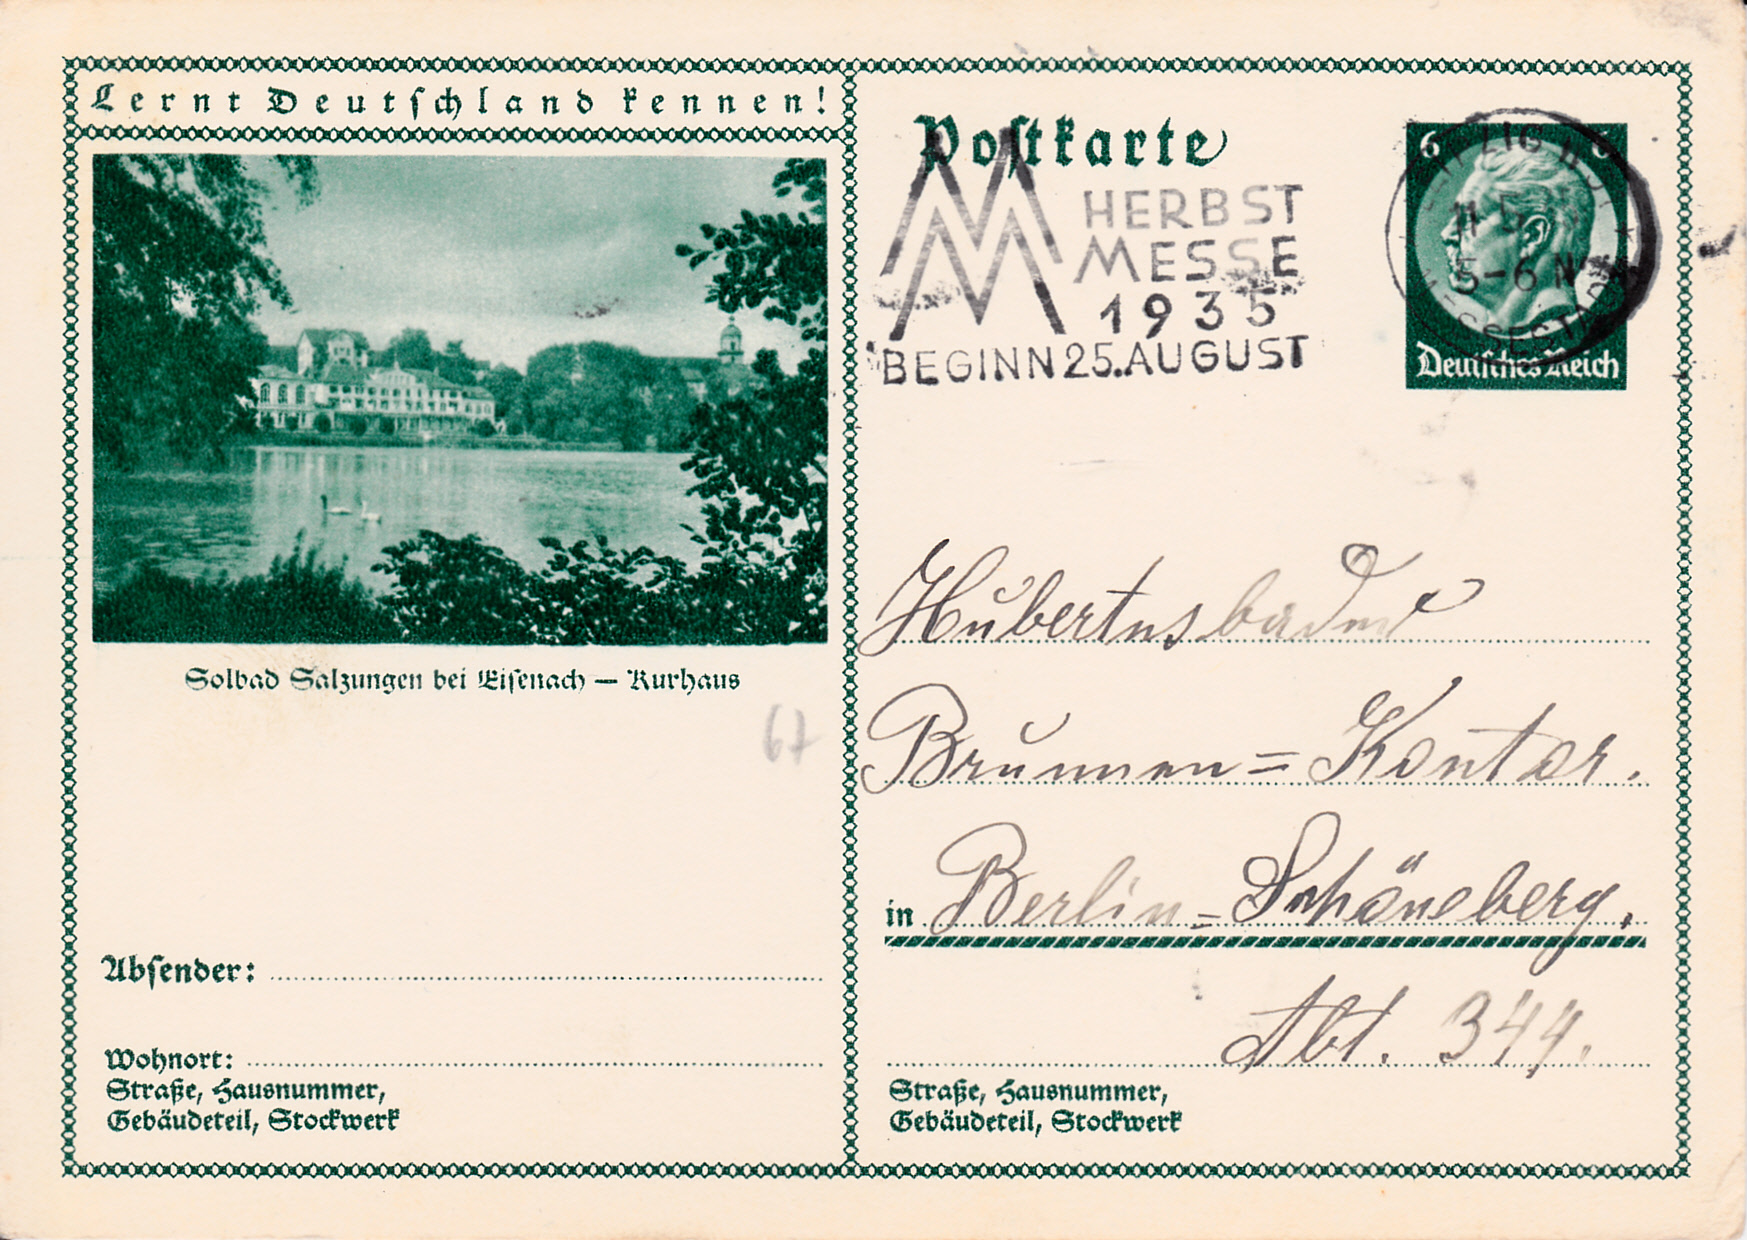 Lernt Deutschland kennen!
Solbad Salzungen bei Eisenach — Kurhaus
67
Absender:
Wohnort:
Straße, Hausnummer,
Gebäudeteil, Stockwerk
Postkarte
HERBST
MESSE
1935
BEGINN 25. AUGUST
6 6
LEIPZIG
5-6 N
MESSESTADT
Deutsches Reich
Hubertusbader
Brunnen=Kontor.
in Berlin=Schöneberg.
Abt. 344.
Straße, Hausnummer,
Gebäudeteil, Stockwerk